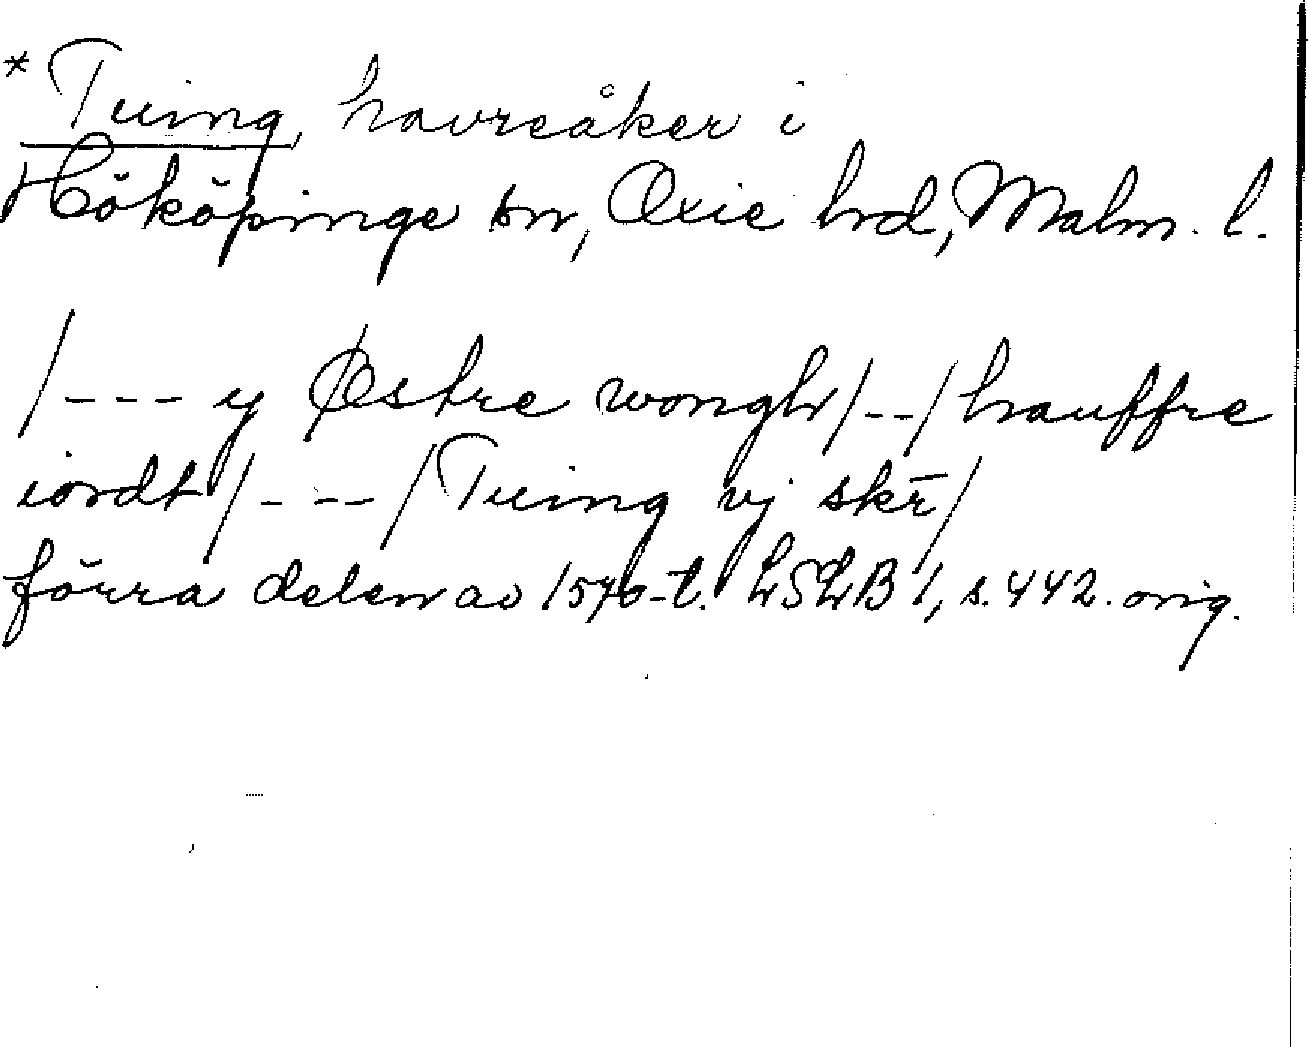 * Tuing, havreåker i
Hököpinge sn, Oxie hrd, Malm. l.
/--- y Østre wongh/--/hauffre
iordt/---/Tuing vj skr̄/
förra delen av 1570-t. LSLB 1, s. 442. orig.